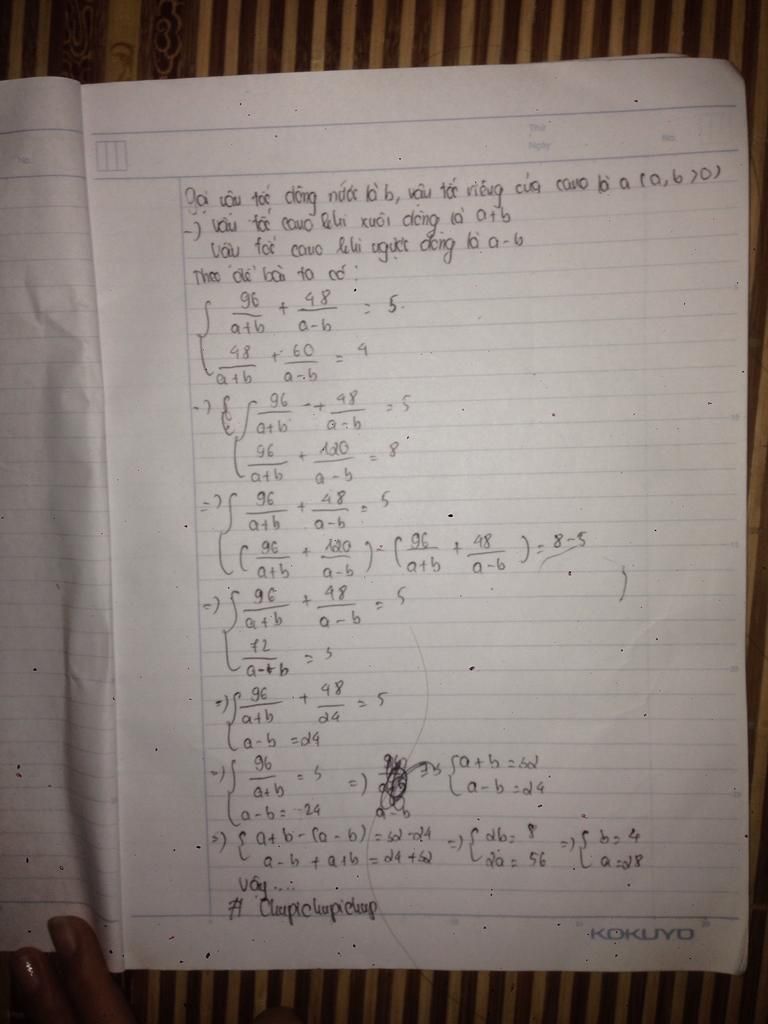 Thứ
Ngày
No.
No.
Gọi vận tốc dòng nước là b, vận tốc riêng của cano là a (a, b > 0)
-) vận tốc cano khi xuôi dòng là a+b
Vận tốc cano khi ngược dòng là a-b
Theo đề bài ta có:
{ 96/(a+b) + 48/(a-b) = 5
{ 48/(a+b) + 60/(a-b) = 4
-) { 96/(a+b) + 48/(a-b) = 5
{ 96/(a+b) + 120/(a-b) = 8
=) { 96/(a+b) + 48/(a-b) = 5
{ (96/(a+b) + 120/(a-b)) - (96/(a+b) + 48/(a-b)) = 8-5
=) { 96/(a+b) + 48/(a-b) = 5
{ 72/(a-b) = 3
=) { 96/(a+b) + 48/24 = 5
{ a-b = 24
=) { 96/(a+b) = 3 =) { a+b = 32
{ a-b = 24 { a-b = 24
=) { a+b-(a-b) = 32-24 =) { 2b = 8 =) { b = 4
{ a-b+a+b = 24+32 { 2a = 56 { a = 28
Vậy....
# Chupichupichup
KOKUYO